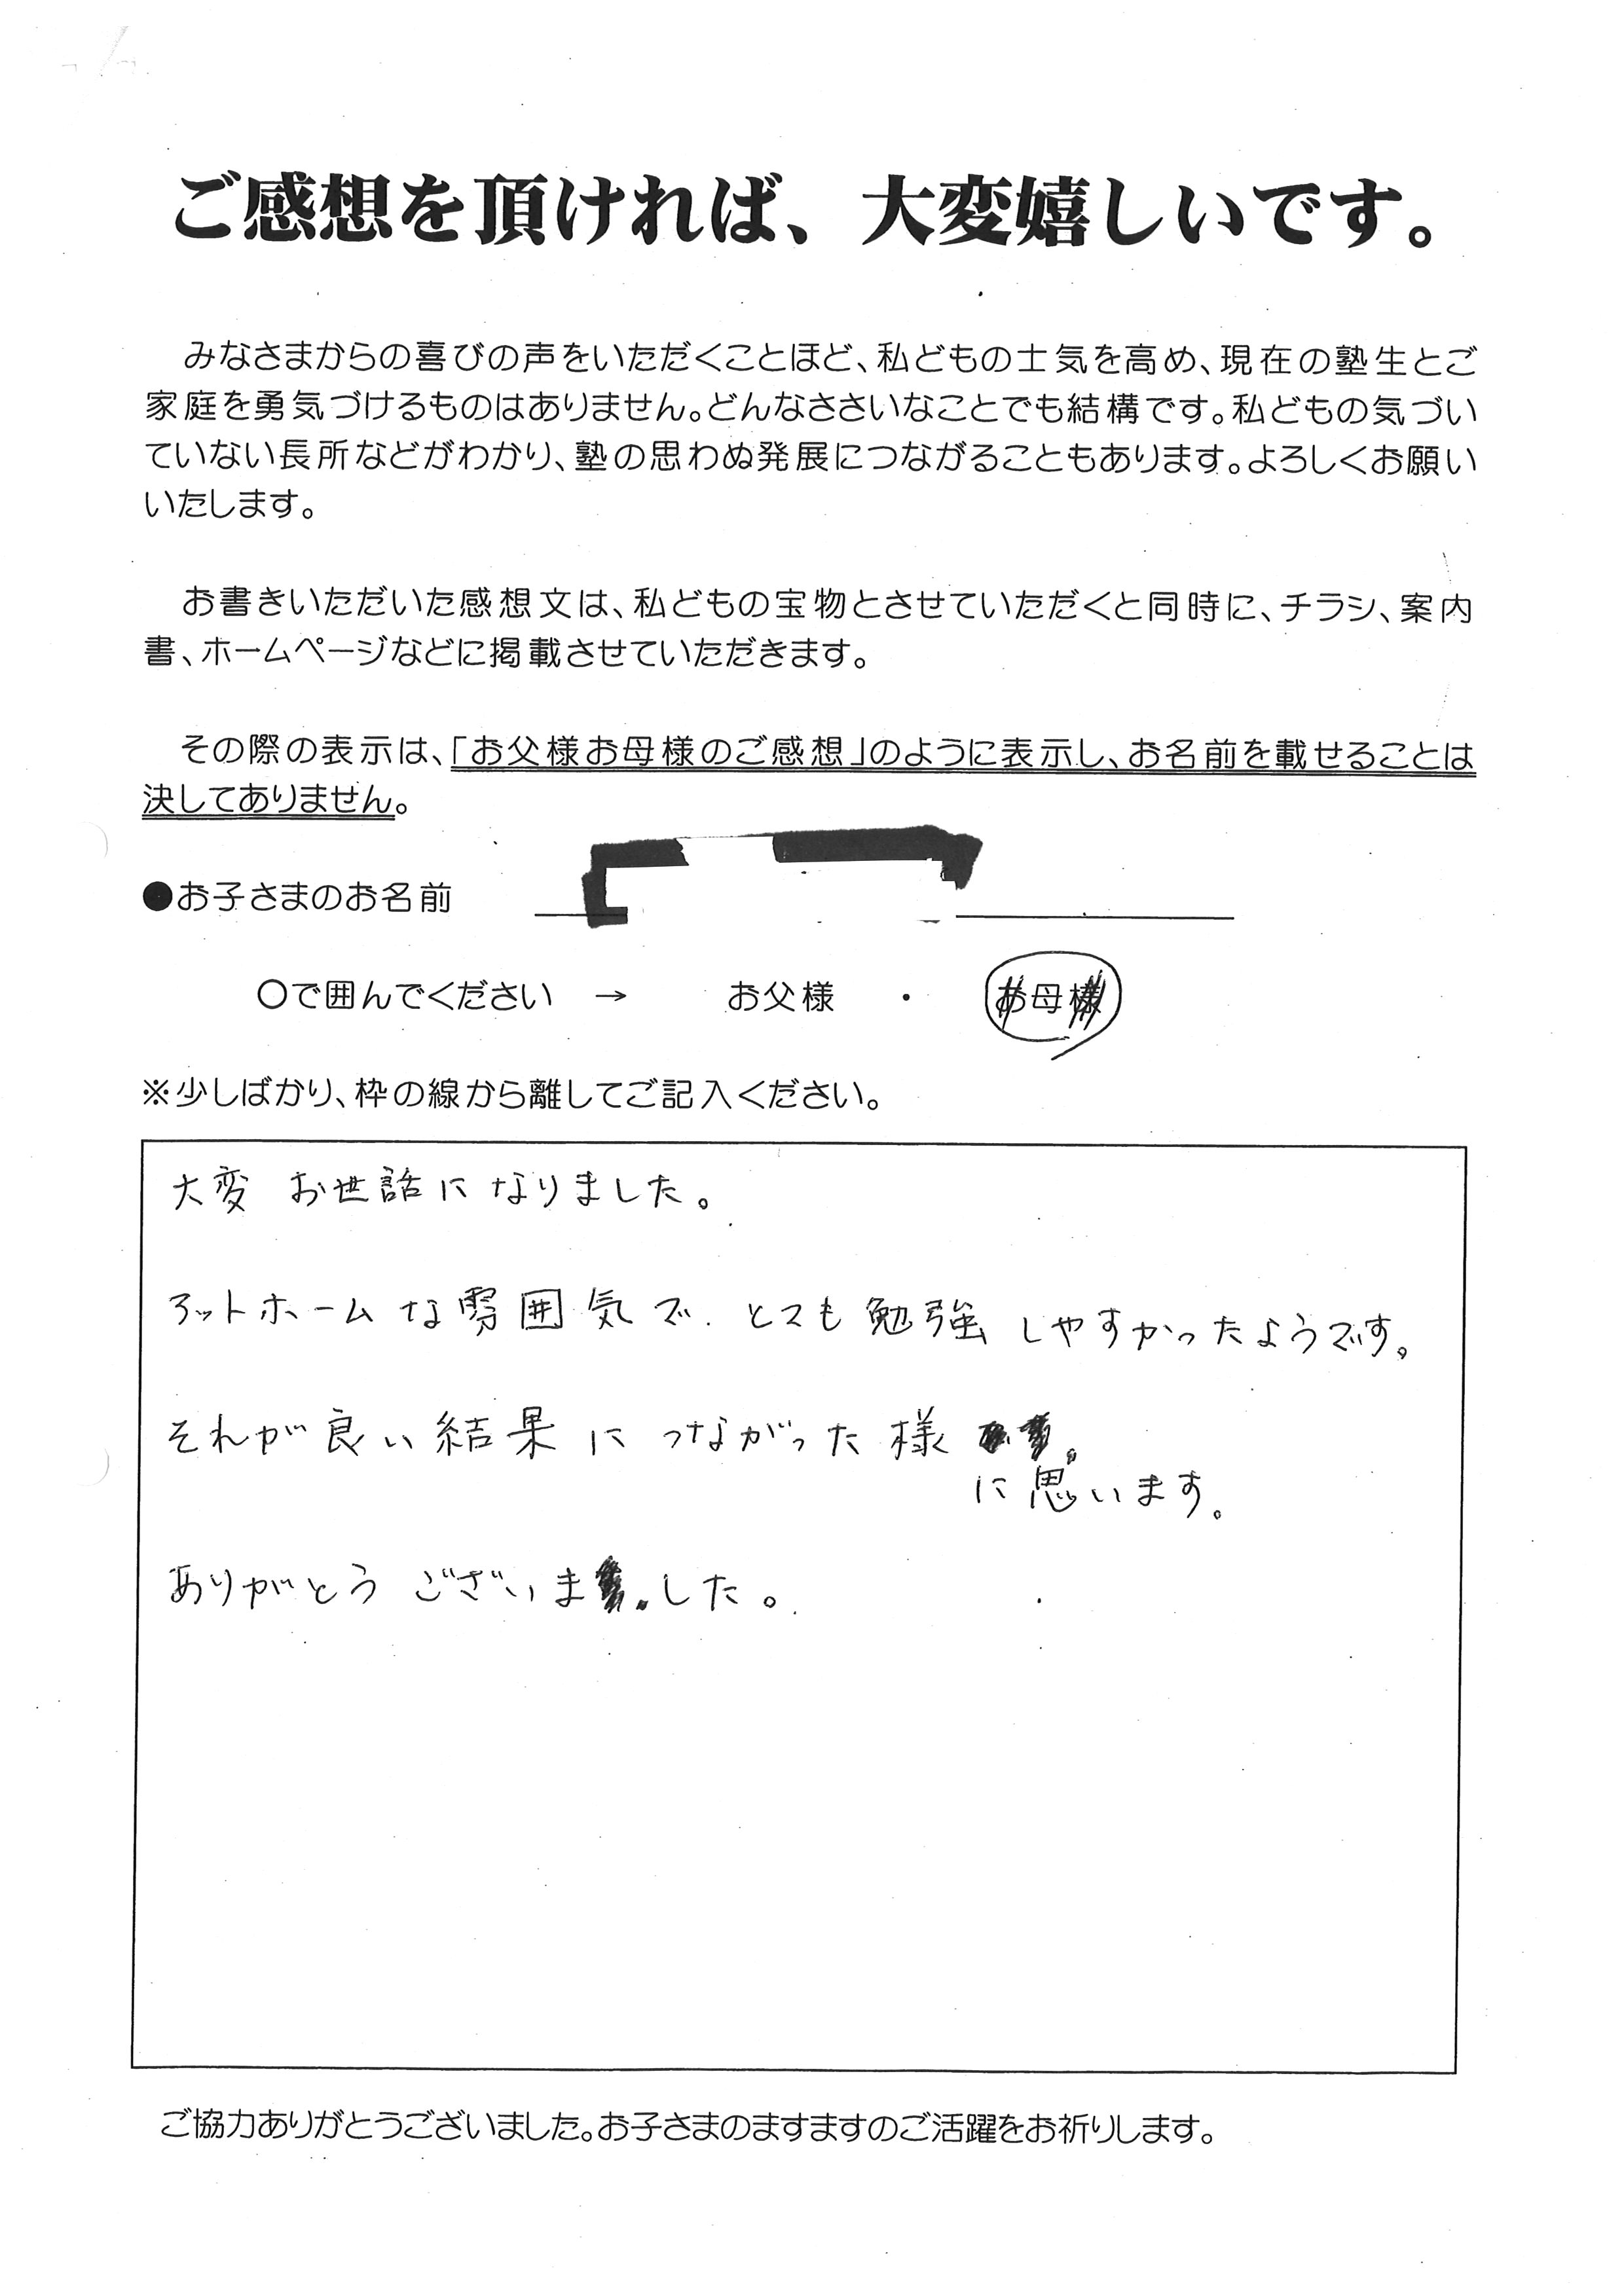 ご感想を頂ければ、大変嬉しいです。
みなさまからの喜びの声をいただくことほど、私どもの士気を高め、現在の塾生とご
家庭を勇気づけるものはありません。どんなささいなことでも結構です。私どもの気づい
ていない長所などがわかり、塾の思わぬ発展につながることもあります。よろしくお願い
いたします。
お書きいただいた感想文は、私どもの宝物とさせていただくと同時に、チラシ、案内
書、ホームページなどに掲載させていただきます。
その際の表示は、「お父様お母様のご感想」のように表示し、お名前を載せることは
決してありません。
●お子さまのお名前
○で囲んでください → お父様 ・ お母様
※少しばかり、枠の線から離してご記入ください。
大変 お世話に なりました。
アットホームな雰囲気で、とても勉強しやすかったようです。
それが良い結果につながった様
に思います。
ありがとうございました。
ご協力ありがとうございました。お子さまのますますのご活躍をお祈りします。